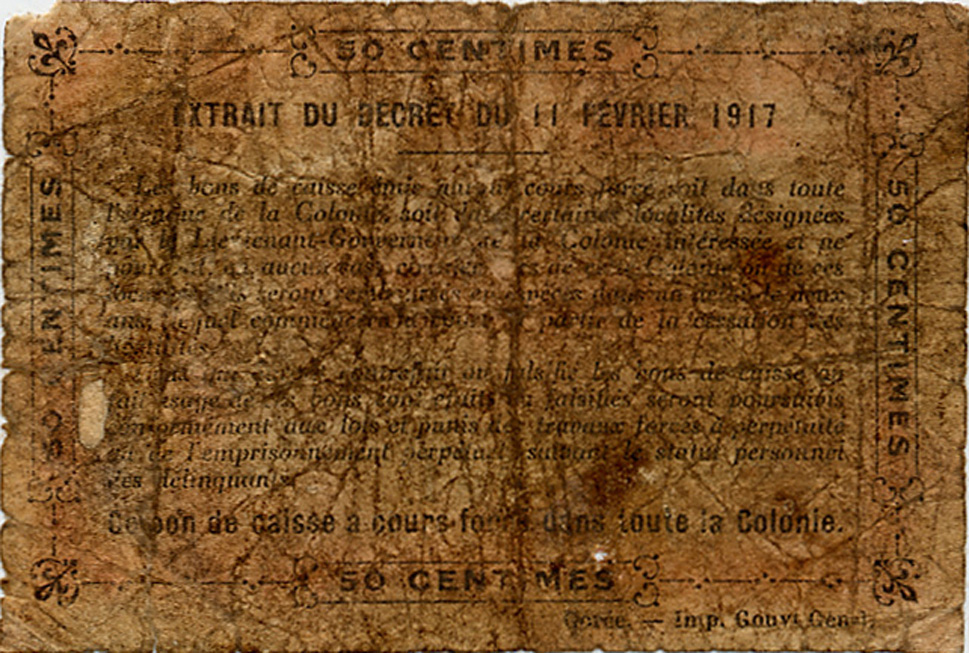 50 CENTIMES
EXTRAIT DU DECRET DU 11 FEVRIER 1917
Les bons de caisse émis auront cours forcé soit dans toute
l'étendue de la Colonie, soit dans certaines localités désignées
par le Lieutenant-Gouverneur de la Colonie intéressée et ne
aucun cas de cette Colonie ou de ces
Ils seront remboursés en espèces dans un délai de deux
ans, commencera à partir de la cessation des
hostilités.
contrefait ou falsifié les bons de caisse ou
fait usage de bons contrefaits ou falsifiés seront poursuivis
conformément aux lois et punis des travaux forcés à perpétuité
ou de l'emprisonnement perpétuel suivant le statut personnel
des délinquants.
Ce bon de caisse a cours forcé dans toute la Colonie.
50 CENTIMES
50 CENTIMES
50 CENTIMES
Gorée. — Imp. Gouvt Génal.